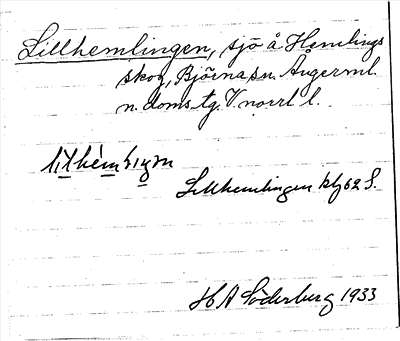 Lillhemlingen, sjö å Hemlings
skog, Björna sn. Ångerml.
n. doms tg. V. norrl l.
Lillhemlingen kbl 62 S.
H A Söderberg 1933